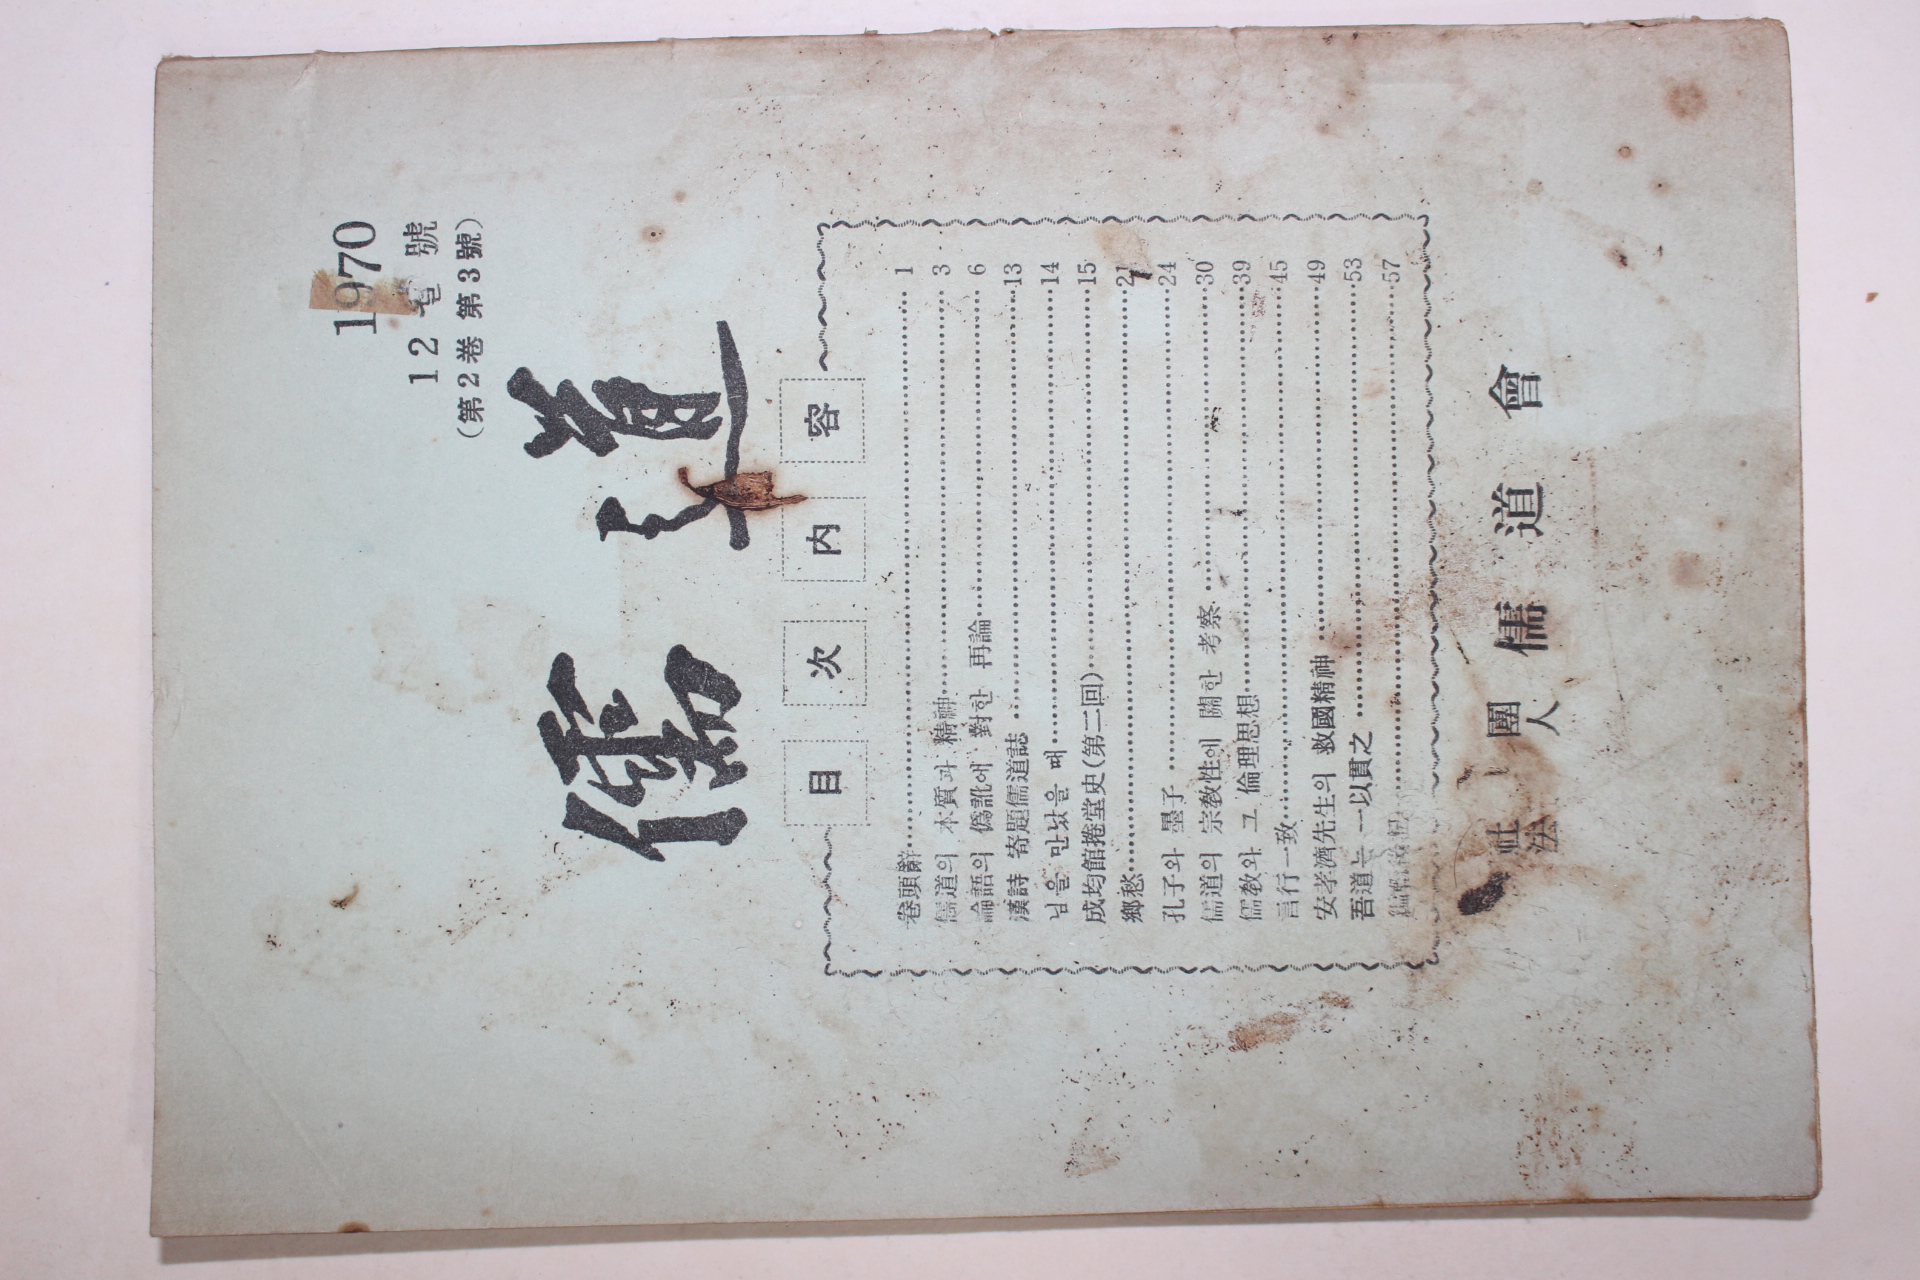 1970
12월號
(第2卷 第3號)
儒道
目次內容
卷頭辭 1
儒道의 本質과 精神 3
論語의 僞訛에 對한 再論 6
漢詩 寄題儒道誌 13
님을 만났을 때 14
成均館捲堂史(第二回) 15
鄕愁 21
孔子와 墨子 24
儒道의 宗敎性에 關한 考察 30
儒敎와 그 倫理思想 39
言行一致 45
安孝濟先生의 救國精神 49
吾道는 一以貫之 53
57
社團
法人
儒道會